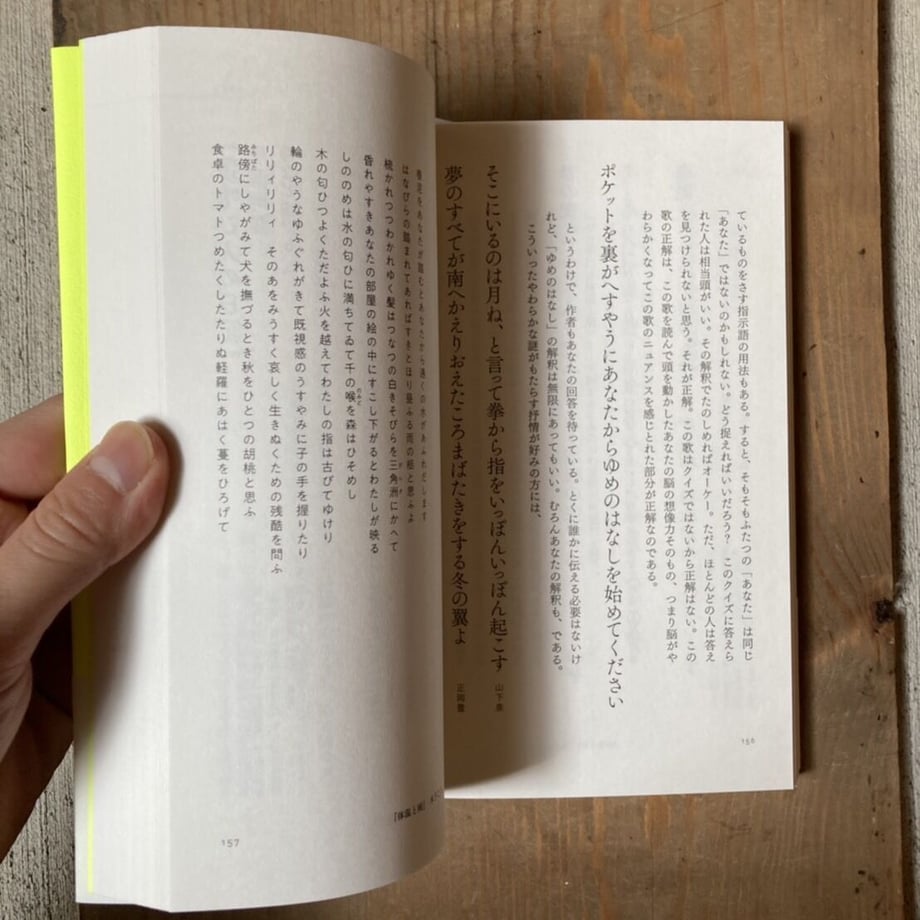 ているものをさす指示語の用法もある。すると、そもそもふたつの「あなた」は同じ
「あなた」ではないのかもしれない。どう捉えればいいだろう？　このクイズに答えら
れた人は相当頭がいい。その解釈でたのしめればオーケー。ただ、ほとんどの人は答え
を見つけられないと思う。それが正解。この歌はクイズではないから正解はない。この
歌の正解は、この歌を読んで頭を動かしたあなたの脳の想像力そのもの、つまり脳がや
わらかくなってこの歌のニュアンスを感じとれた部分が正解なのである。
ポケットを裏がへすやうにあなたからゆめのはなしを始めてください
というわけで、作者もあなたの回答を待っている。とくに誰かに伝える必要はないけ
れど、「ゆめのはなし」の解釈は無限にあってもいい。むろんあなたの解釈も、である。
こういったやわらかな謎がもたらす抒情が好みの方には、
そこにいるのは月ね、と言って拳から指をいっぽんいっぽん起こす　山下泉
夢のすべてが南へかえりおえたころまばたきをする冬の翼よ　正岡豊
156
をあなたが踏むとあなたから遠くの水があふれだします
はなびらの踏まれてあればすきとほり昼ふる雨の柩と思ふよ
梳かれつつわかれゆく髪はつなつの白きそびらを三角洲にかへて
昏れやすきあなたの部屋の絵の中にすこし下がるとわたしが映る
しののめは水の匂ひに満ちてゐて千の喉を森はひそめし
木の匂ひつよくただよふ火を越えてわたしの指は古びてゆけり
輪のやうなゆふぐれがきて既視感のうすやみに子の手を握りたり
リリィリリィ　そのあをみうすく哀しく生きぬくための残酷を問ふ
路傍にしやがみて犬を撫づるとき秋をひとつの胡桃と思ふ
食卓のトマトつめたくしたたりぬ軽羅にあはく蔓をひろげて
157